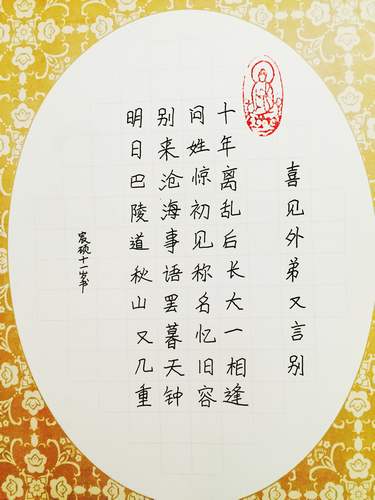 喜见外弟又言别
十年离乱后长大一相逢
问姓惊初见称名忆旧容
别来沧海事语罢暮天钟
明日巴陵道秋山又几重
宸硕十一岁书